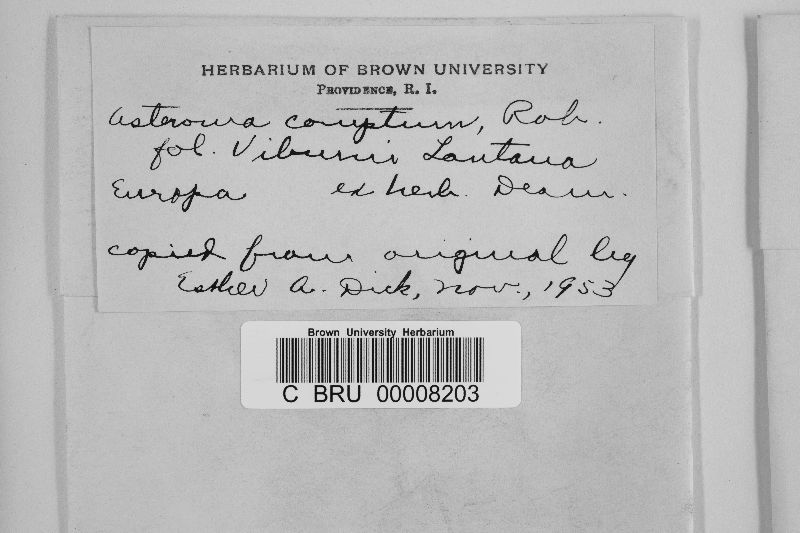 HERBARIUM OF BROWN UNIVERSITY
PROVIDENCE, R. I.
Asteroma comptum, Rob.
fol. Viburni Lantana
Europa ex herb. Deam.
copied from original by
Esther A. Dick, Nov., 1953
Brown University Herbarium
C BRU 00008203